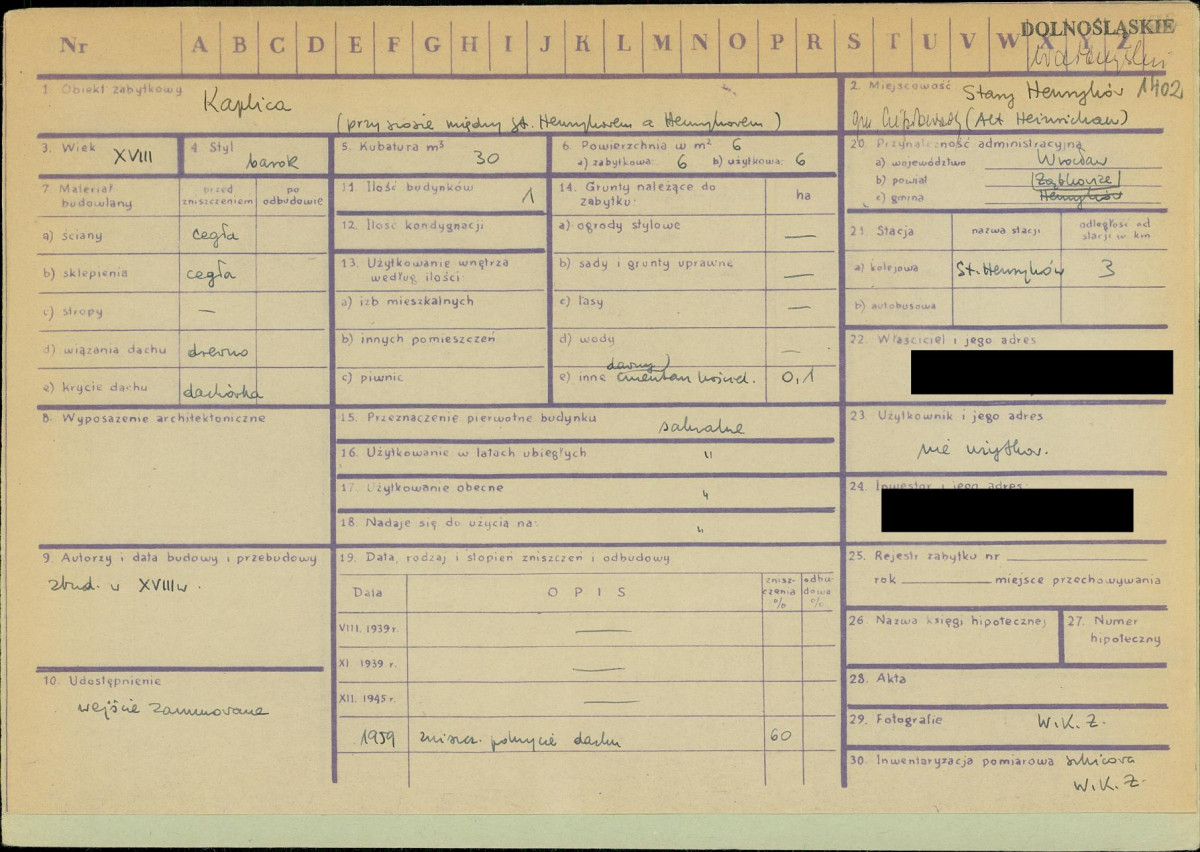 Nr A B C D E F G H I J K L M N O P R S T U V W X Y Z
DOLNOŚLĄSKIE
1402
1. Obiekt zabytkowy Kaplica
(przy szosie między St. Henrykowem a Henrykowem)
2. Miejscowość Stary Henryków
gm. (Alt Heinrichau)
3. Wiek XVIII
4. Styl barok
5. Kubatura m³ 30
6. Powierzchnia w m² 6
a) zabytkowa: 6 b) użytkowa: 6
20. Przynależność administracyjna
a) województwo Wrocław
b) powiat Ząbkowice
c) gmina Henryków
7. Materiał budowlany
przed zniszczeniem
po odbudowie
a) ściany cegła
b) sklepienia cegła
c) stropy —
d) wiązania dachu drewno
e) krycie dachu dachówka
11. Ilość budynków 1
12. Ilość kondygnacji
13. Użytkowanie wnętrza
według ilości:
a) izb mieszkalnych
b) innych pomieszczeń
c) piwnic
14. Grunty należące do
zabytku:
ha
a) ogrody stylowe —
b) sady i grunty uprawne —
c) lasy —
d) wody —
e) inne dawny cmentarz 0,1
21. Stacja
nazwa stacji
odległość od
stacji w km
a) kolejowa St. Henryków 3
b) autobusowa
22. Właściciel i jego adres
8. Wyposażenie architektoniczne
15. Przeznaczenie pierwotne budynku sakralne
16. Użytkowanie w latach ubiegłych "
17. Użytkowanie obecne "
18. Nadaje się do użycia na: "
23. Użytkownik i jego adres
nie użytkow.
24. Inwestor i jego adres:
9. Autorzy i data budowy i przebudowy
zbud. w XVIII w.
19. Data, rodzaj i stopień zniszczeń i odbudowy
Data OPIS znisz-czenia % odbu-dowa %
VIII. 1939 r. —
XI. 1939 r. —
XII. 1945 r. —
1959 zniszcz. pokrycie dachu 60
25. Rejestr zabytku nr
rok miejsce przechowywania
26. Nazwa księgi hipotecznej
27. Numer
hipoteczny
10. Udostępnienie
wejście zamurowane
28. Akta
29. Fotografie W.K.Z.
30. Inwentaryzacja pomiarowa szkicowa
W.K.Z.